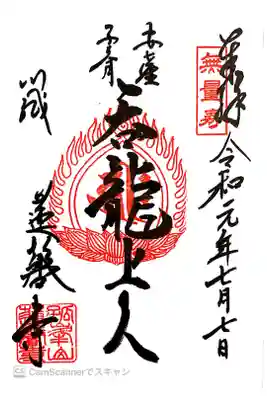 奉拝 令和元年七月七日
無量寿
安産
子育
呑龍上人
川越
蓮馨寺
CS CamScannerでスキャン